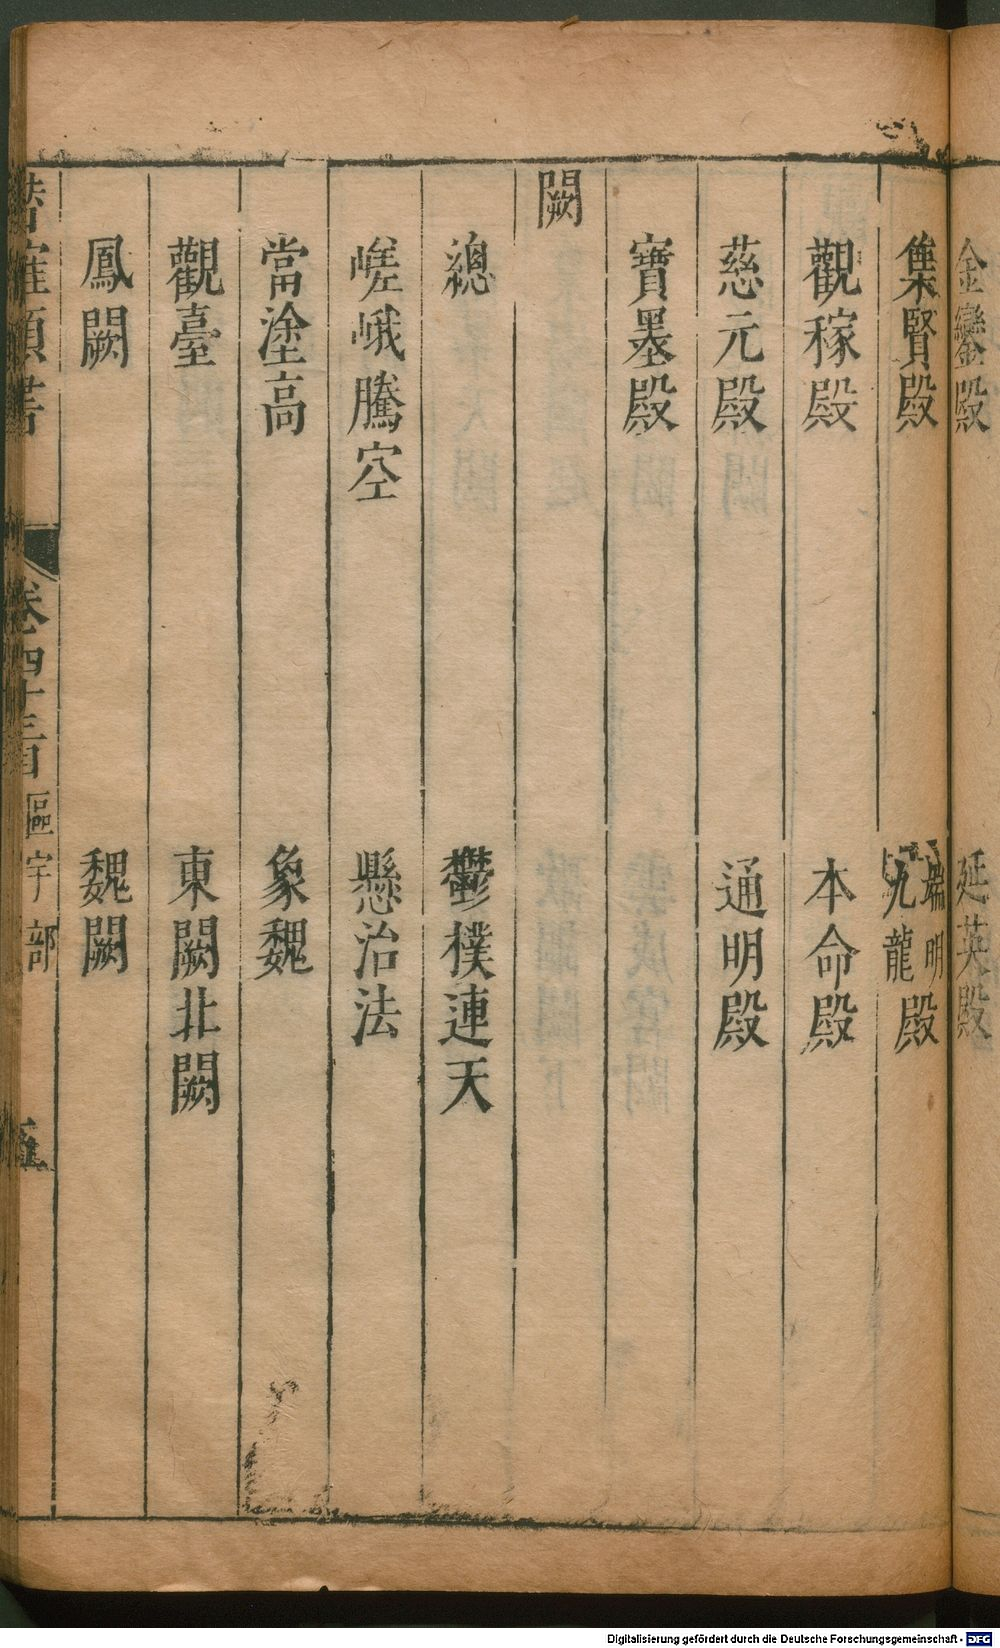 金鑾殿 延英殿
集賢殿 端明九龍殿
觀稼殿 本命殿
慈元殿 通明殿
寶墨殿
闕
總 鬱樸連天
嵯峨騰空 懸治法
當塗高 象魏
觀臺 東闕北闕
鳳闕 魏闕
卷四十三目 區宇部 五
Digitalisierung gefördert durch die Deutsche Forschungsgemeinschaft - DFG